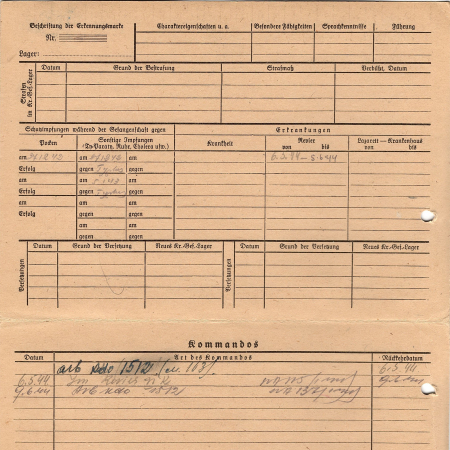 Beschriftung der Erkennungsmarke
Nr.
Lager:
Charaktereigenschaften u. a.
Besondere Fähigkeiten
Sprachkenntnisse
Führung
Strafen im Kr.-Gef.-Lager
Datum
Grund der Bestrafung
Strafmaß
Verbüßt, Datum
Schutzimpfungen während der Gefangenschaft gegen
Erkrankungen
Pocken
Sonstige Impfungen
(Ty-Paraty, Ruhr, Cholera usw.)
Krankheit
Revier
von bis
Lazarett - Krankenhaus
von bis
am am am
6.3.44 - 8.6.44
Erfolg gegen gegen
am am am
Erfolg gegen gegen
am am am
Erfolg gegen gegen
am am
gegen gegen
Versetzungen
Datum
Grund der Versetzung
Neues Kr.-Gef.-Lager
Versetzungen
Datum
Grund der Versetzung
Neues Kr.-Gef.-Lager
Kommandos
Datum
Art des Kommandos
Rückkehrdatum
Arb Kdo 1512
6.3.44
6.3.44 Im Revier
9.6.44 Arb Kdo 1512